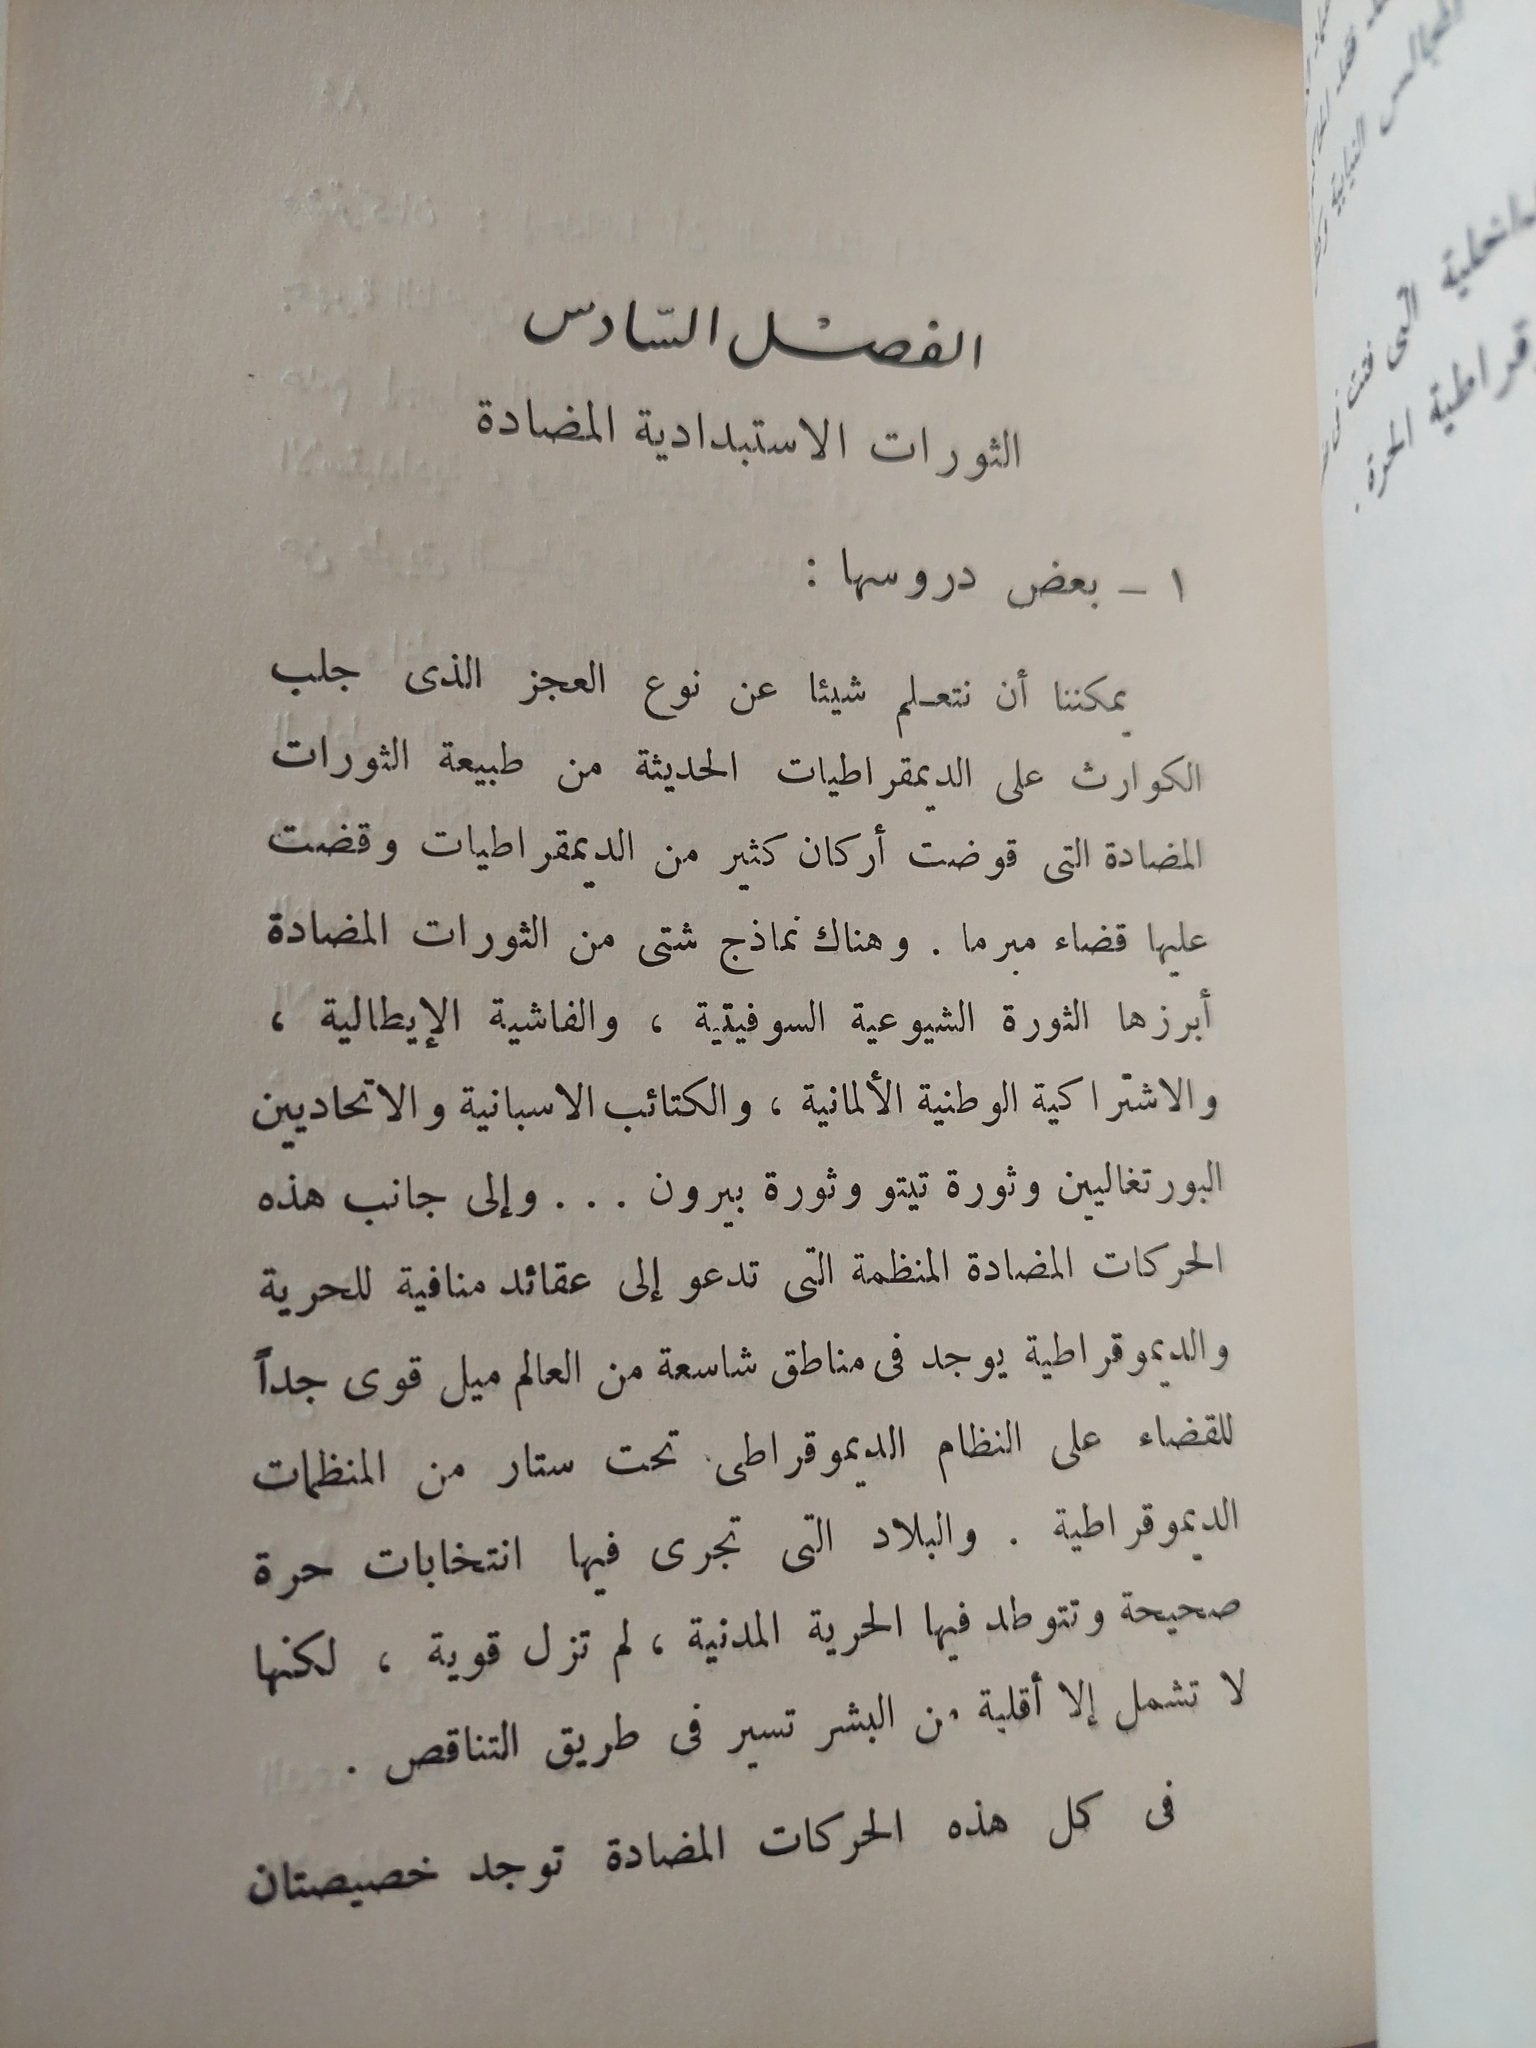 الفصل السّادس
الثورات الاستبدادية المضادة
١ – بعض دروسها :
يمكننا أن نتعلم شيئا عن نوع العجز الذى جلب
الكوارث على الديمقراطيات الحديثة من طبيعة الثورات
المضادة التى قوضت أركان كثير من الديمقراطيات وقضت
عليها قضاء مبرما . وهناك نماذج شتى من الثورات المضادة
أبرزها الثورة الشيوعية السوفيتية ، والفاشية الإيطالية ،
والاشتراكية الوطنية الألمانية ، والكتائب الاسبانية والاتحاديين
البورتغاليين وثورة تيتو وثورة بيرون . . . وإلى جانب هذه
الحركات المضادة المنظمة التى تدعو إلى عقائد منافية للحرية
والديموقراطية يوجد فى مناطق شاسعة من العالم ميل قوى جداً
للقضاء على النظام الديموقراطى تحت ستار من المنظمات
الديموقراطية . والبلاد التى تجرى فيها انتخابات حرة
صحيحة وتتوطد فيها الحرية المدنية ، لم تزل قوية ، لكنها
لا تشمل إلا أقلية من البشر تسير فى طريق التناقص .
فى كل هذه الحركات المضادة توجد خصيصتان
المجالس النيابية
التى فتت فى
الحرة .